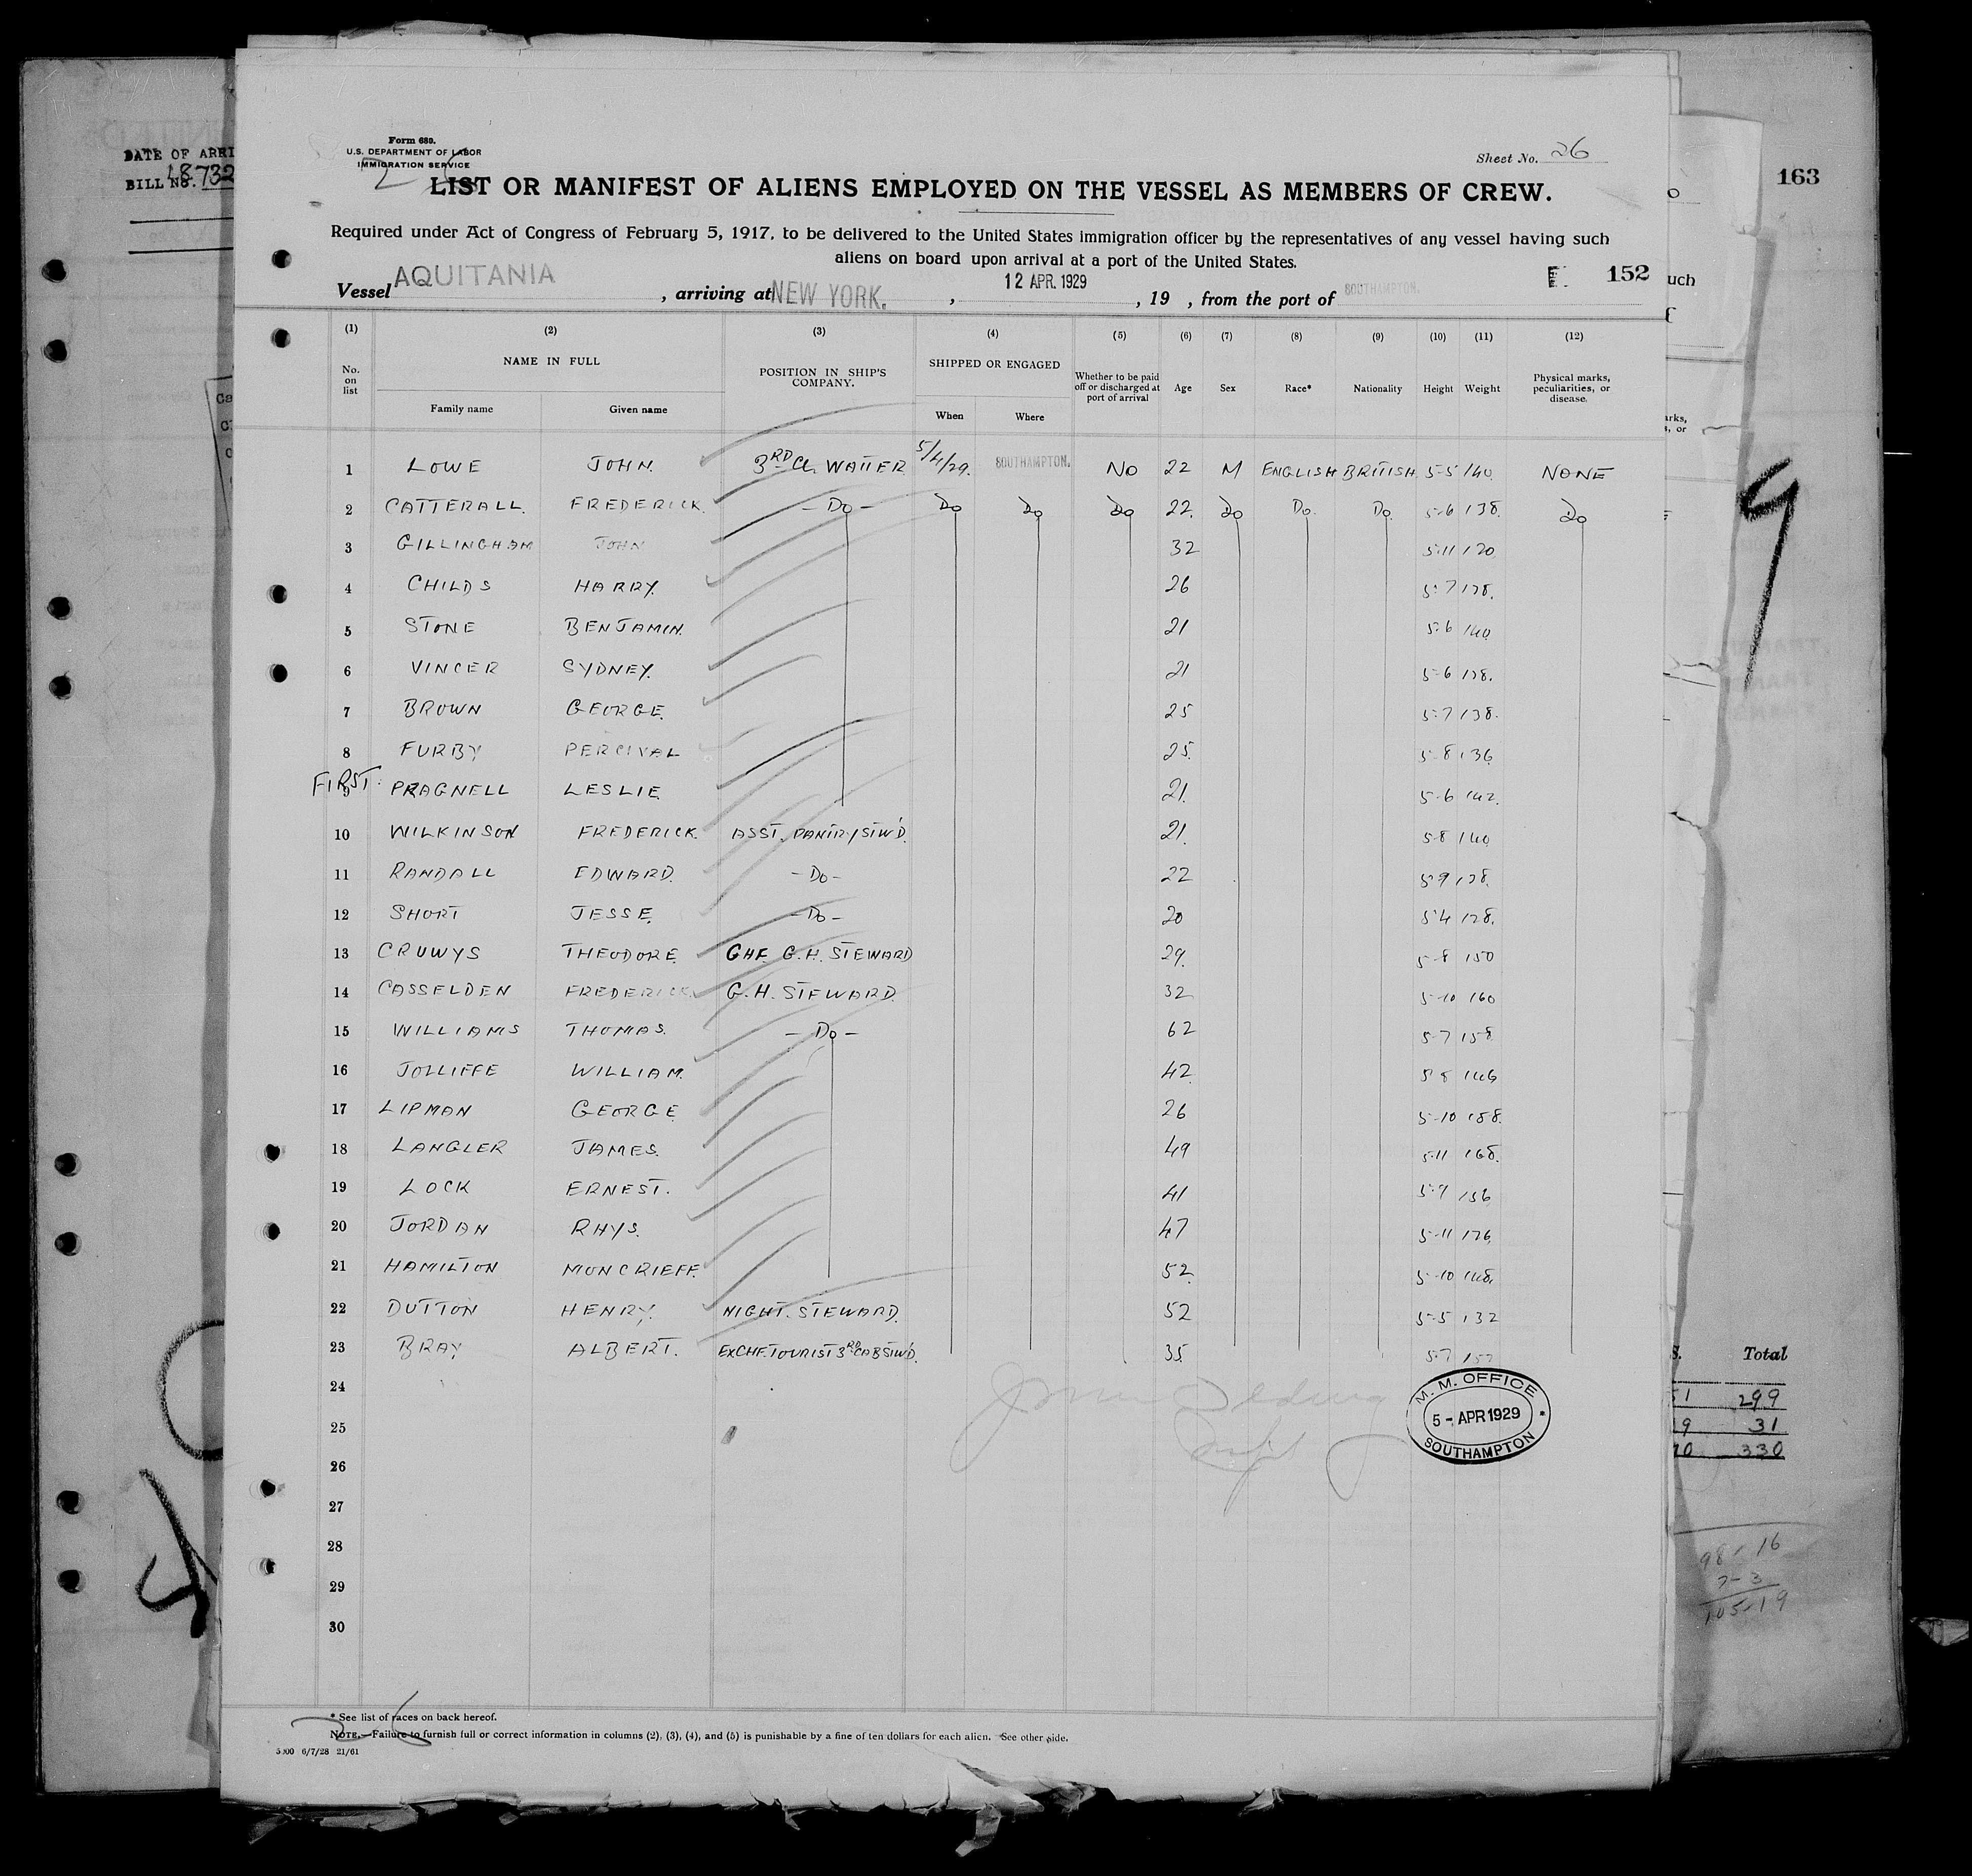 DATE OF ARRI
BILL NO. 18732
163
Form 689.
U.S. DEPARTMENT OF LABOR
IMMIGRATION SERVICE
Sheet No. 26
LIST OR MANIFEST OF ALIENS EMPLOYED ON THE VESSEL AS MEMBERS OF CREW.
Required under Act of Congress of February 5, 1917, to be delivered to the United States immigration officer by the representatives of any vessel having such
aliens on board upon arrival at a port of the United States.
152
Vessel AQUITANIA, arriving at NEW YORK., 12 APR. 1929, 19 , from the port of SOUTHAMPTON.
(1) (2) (3) (4) (5) (6) (7) (8) (9) (10) (11) (12)
No. on list NAME IN FULL POSITION IN SHIP'S COMPANY. SHIPPED OR ENGAGED Whether to be paid off or discharged at port of arrival Age Sex Race* Nationality Height Weight Physical marks, peculiarities, or disease.
Family name Given name When Where
1 LOWE JOHN. 3RD Cl. WAITER 5/4/29. SOUTHAMPTON. NO 22 M ENGLISH BRITISH 5-5 140. NONE
2 CATTERALL. FREDERICK. - Do - Do Do Do 22. Do Do. Do. 5-6 138. Do
3 GILLINGHAM JOHN 32 5-11 120
4 CHILDS HARRY. 26 5-7 128.
5 STONE BENJAMIN. 21 5-6 140
6 VINCER SYDNEY. 21 5-6 128.
7 BROWN GEORGE. 25 5-7 138.
8 FURBY PERCIVAL 25. 5-8 136
FIRST.
9 PRAGNELL LESLIE. 21. 5-6 142.
10 WILKINSON FREDERICK. ASST. PANTRY STW'D. 21. 5-8 140
11 RANDALL EDWARD. - Do - 22 5-9 128.
12 SHORT JESSE. - Do - 20 5-4 128.
13 CRUWYS THEODORE. CHF. G.H. STEWARD 29. 5-8 150
14 CASSELDEN FREDERICK. G.H. STEWARD. 32 5-10 160
15 WILLIAMS THOMAS. - Do - 62 5-7 158
16 JOLLIFFE WILLIAM. 42. 5-8 146
17 LIPMAN GEORGE 26 5-10 158.
18 LANGLER JAMES. 49 5-11 168.
19 LOCK ERNEST. 41 5-9 156
20 JORDAN RHYS. 47 5-11 176
21 HAMILTON MONCRIEFF. 52. 5-10 148
22 DUTTON HENRY. NIGHT. STEWARD. 52 5-5 132
23 BRAY ALBERT. EX CHF. TOURIST 3RD CAB STW'D. 35. 5-7
24
25
26
27
28
29
30
M. M. OFFICE
5 - APR 1929
SOUTHAMPTON
Total
299
31
330
98 - 16
7 - 3
105-19
* See list of races on back hereof.
NOTE.—Failure to furnish full or correct information in columns (2), (3), (4), and (5) is punishable by a fine of ten dollars for each alien. See other side.
6/7/28 21/61